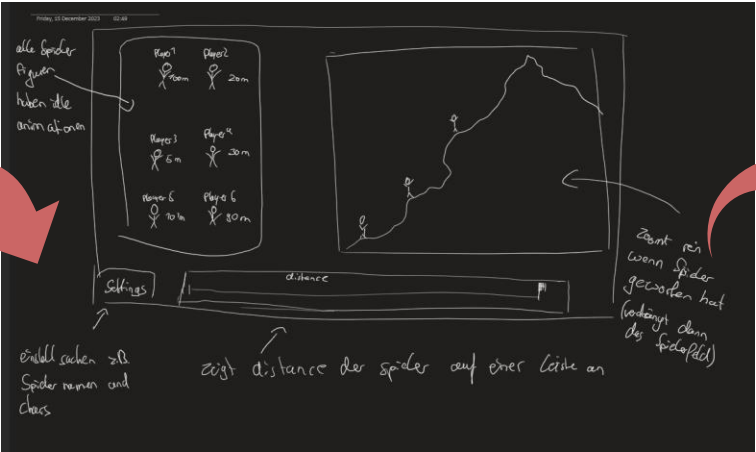 Friday, 15 December 2023 02:49
alle Spieler
Figuren
haben idle
animationen
Player 1 Player 2
100m 20m
Player 3 Player 4
5m 30m
Player 5 Player 6
10m 80m
Settings
distance
zoomt rein
wenn Spieler
geworfen hat
(verdrängt dann
das Spielerfeld)
einstell sachen z.B.
Spieler namen und
chars
zeigt distance der spieler auf einer Leiste an